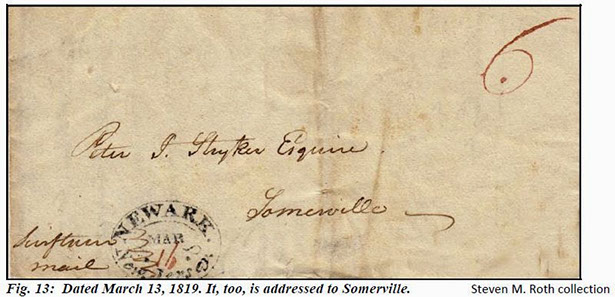 6
Peter I. Stryker Esquire
Somerville
NEWARK
MAR
16
New Jersey
mail
Fig. 13: Dated March 13, 1819. It, too, is addressed to Somerville.
Steven M. Roth collection